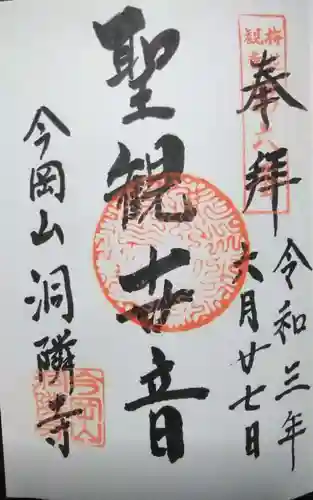 奉拝
令和三年
六月廿七日
聖観世音
今岡山洞隣寺